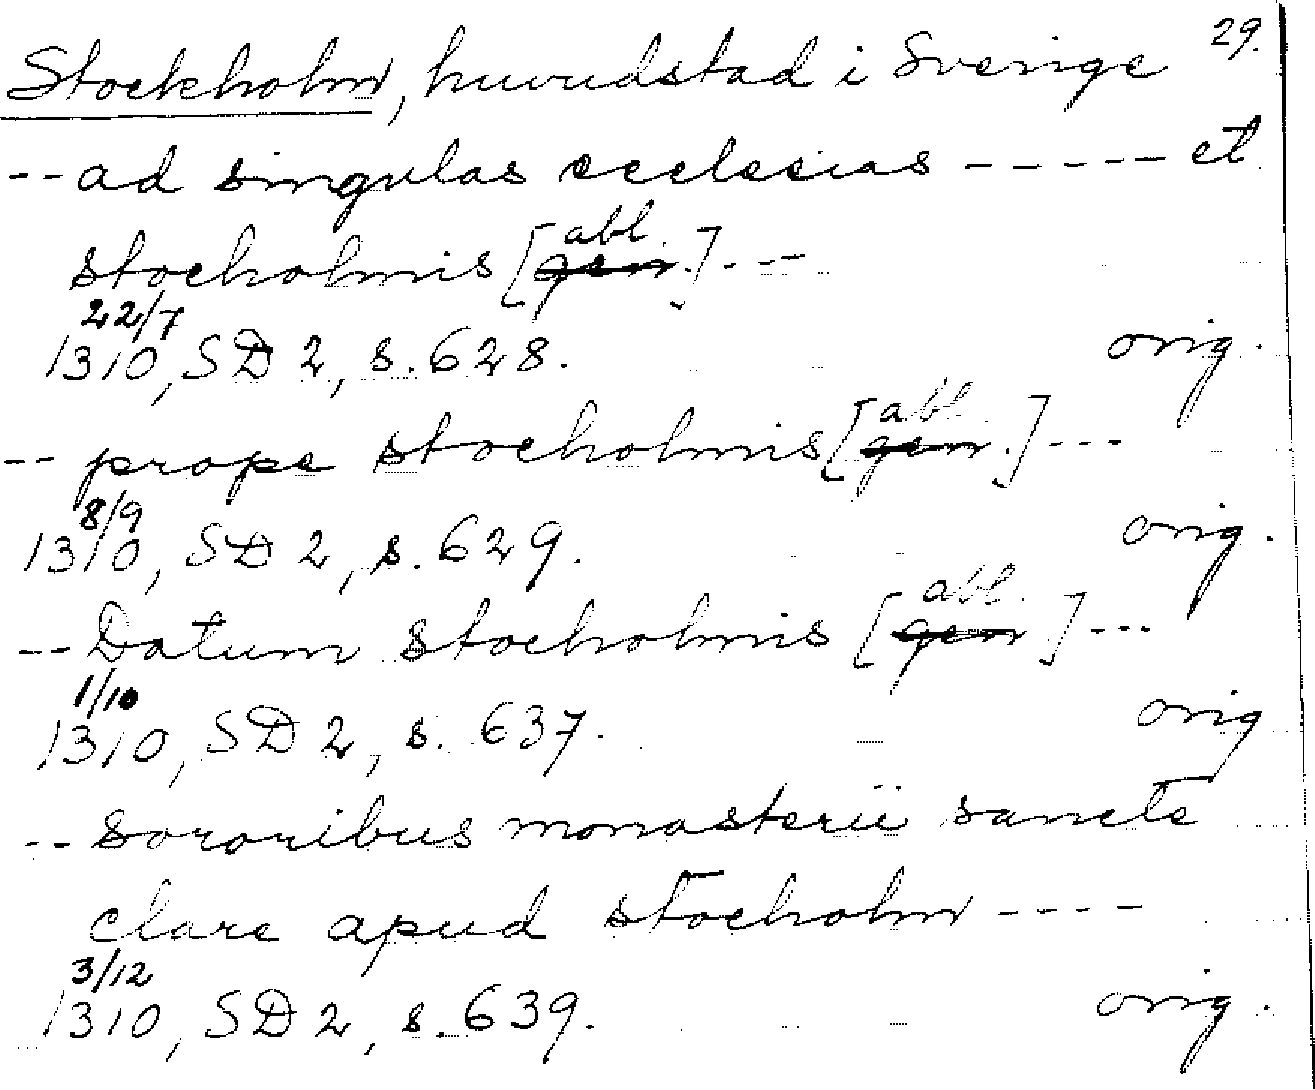 Stockholm, huvudstad i Sverige 29.
-- ad singulas ecclesias ----- et
abl.
stocholmis [gen.] ---
22/7
1310, SD 2, s. 628. orig.
abl.
-- prope stocholmis [gen.] ---
8/9
1310, SD 2, s. 629. orig.
abl.
-- Datum stocholmis [gen] ---
1/10
1310, SD 2, s. 637. orig
-- sororibus monasterii sancte
clare apud stocholm ----
3/12
1310, SD 2, s. 639. orig.